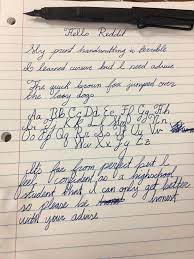 Hello Reddit
My print handwriting is terrible
I learned cursive but I need advice
The quick brown fox jumped over
the lazy dogs
Aa Bb Cc Dd Ee Ff Gg Hh
Ii Jj Kk Ll Mm Nn Oo
Pp Qq Rr Ss Tt Uu Vv
Ww Xx Yy Zz
It's far from perfect but I
feel confident as a highschool
student that it can only get better
so please be honest
with your advice